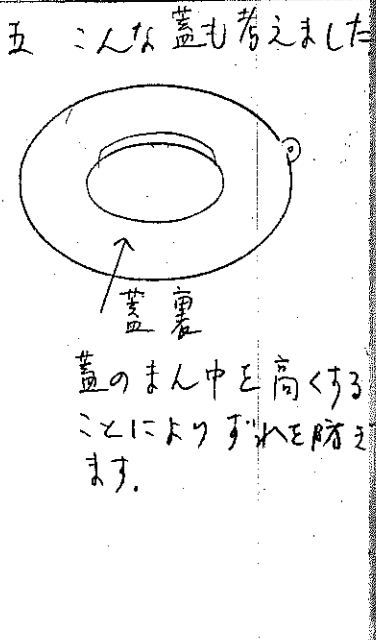 五 こんな蓋も考えました
蓋裏
蓋のまん中を高くする
ことによりずれを防ぎ
ます.